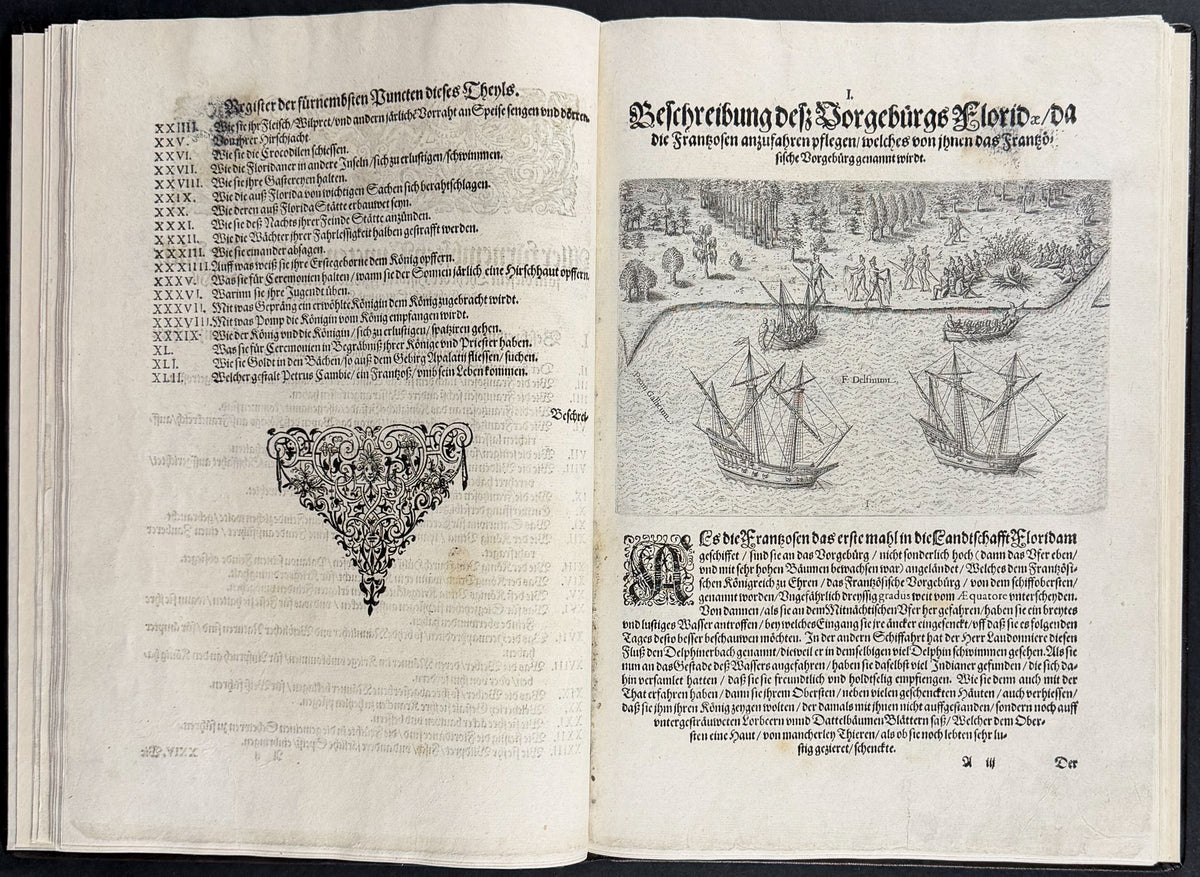 Register der fürnembsten Puncten dieses Theyls.
XXIIII. Wie sie ihr Fleisch/Wilpret/vnd andern järliche Vorraht an Speise sengen vnd dörren.
XXV. Von ihrer Hirschjacht
XXVI. Wie sie die Crocodilen schiessen.
XXVII. Wie die Floridaner in andere Inseln/sich zu erlustigen/schwimmen.
XXVIII. Wie sie ihre Gastereyen halten.
XXIX. Wie die auß Florida von wichtigen Sachen sich berahtschlagen.
XXX. Wie deren auß Florida Stätte erbauwet seyn.
XXXI. Wie sie deß Nachts ihrer Feinde Stätte anzünden.
XXXII. Wie die Wächter ihrer Fahrlessigkeit halben gestrafft werden.
XXXIII. Wie sie einander absagen.
XXXIIII. Auff was weiß sie ihre Erstegeborne dem König opffern.
XXXV. Was sie für Ceremonien halten/wann sie der Sonnen järlich eine Hirschhaut opffern
XXXVI. Warinn sie ihre Jugendt üben.
XXXVII. Mit was Gepräng ein erwöhlte Königin dem König zugebracht wirdt.
XXXVIII. Mit was Pomp die Königin vom König empfangen wirdt.
XXXIX. Wie der König vnd die Königin/sich zu erlustigen/spatziren gehen.
XL. Was sie für Ceremonien in Begräbniß ihrer Könige vnd Priester haben.
XLI. Wie sie Goldt in den Bächen/so auß dem Gebirg Apalatii fliessen/suchen.
XLII. Welcher gestalt Petrus Cambie/ein Frantzoß/vmb sein Leben kommen.
Beschrei-
I.
Beschreibung deß Vorgebürgs Floridæ/da
die Frantzosen anzufahren pflegen/welches von jhnen das Frantzö-
sische Vorgebürg genannt wirdt.
F. Delfinum.
Gallicum.
I
ALs die Frantzosen das erste mahl in die Landtschafft Floridam
geschiffet/sind sie an das Vorgebürg/nicht sonderlich hoch (dann das Vfer eben/
vnd mit sehr hohen Bäumen bewachsen war) angeländet/Welches dem Frantzösi-
schen Königreich zu Ehren/das Frantzösische Vorgebürg/von dem schiffobersten/
genannt worden/Vngefährlich dreyssig gradus weit vom Æquatore vnterscheyden.
Von dannen/als sie an dem Mitnächtischen Vfer her gefahren/haben sie ein breytes
vnd lustiges Wasser antroffen/bey welches Eingang sie jre äncker eingesenckt/vff daß sie es folgenden
Tages desto besser beschauwen möchten. In der andern Schiffahrt hat der Herr Laudonniere diesen
Fluß den Delphinerbach genannt/dieweil er in demselbigen viel Delphin schwimmen gesehen. Als sie
nun an das Gestade deß Wassers angefahren/haben sie daselbst viel Indianer gefunden/die sich da-
hin versamlet hatten/daß sie sie freundtlich vnd holdtselig empfiengen. Wie sie denn auch mit der
That erfahren haben/dann sie jhrem Obersten/neben vielen geschenckten Häuten/auch verhiessen/
daß sie jhm jhren König zeygen wolten/der damals mit jhnen nicht auffgestanden/sondern noch auff
vntergesträuweten Lorbeern vnnd Dattelbäumen Blättern saß/Welcher dem Ober-
sten eine Haut/von mancherley Thieren/als ob sie noch lebten sehr lu-
stig gezieret/schenckte.
A iij Der